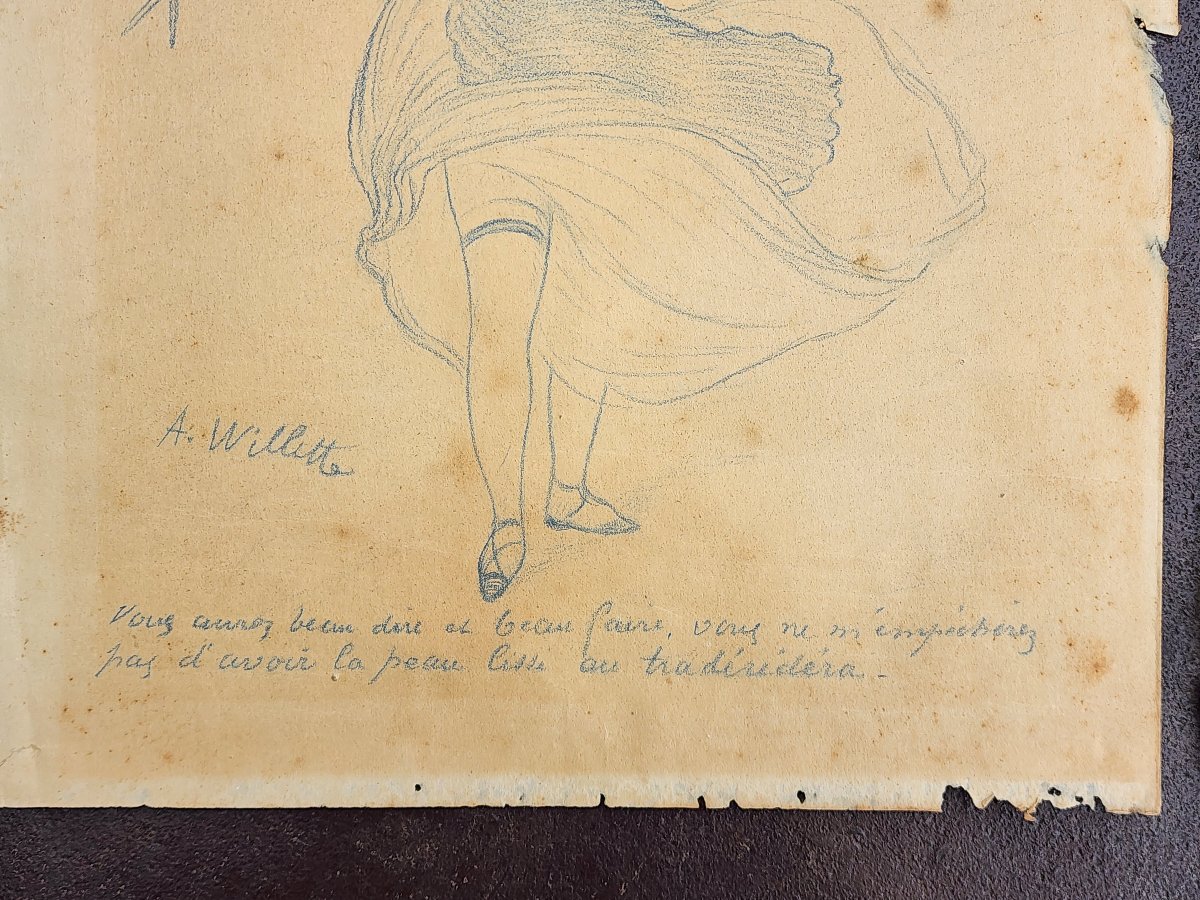 A. Willette
Vous aurez beau dire et beau faire, vous ne m'empécherez
pas d'avoir la peau lisse au tradéridéra -